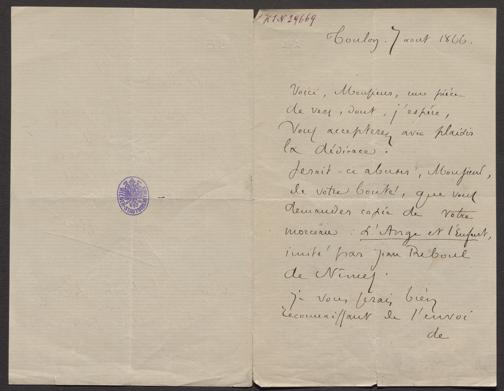 K.I.N 29669
Toulon. 7 aout 1866.
Voici, Monsieur, une pièce
de vers, dont, j'espère,
Vous accepterez avec plaisir
la dédicace.
Serait-ce abuser, Monsieur,
de votre bonté, que vous
demander copie de votre
morceau: L'Ange et l'Enfant,
imité par Jean Reboul
de Nîmes.
Je vous serais bien
reconnaissant de l'envoi
de